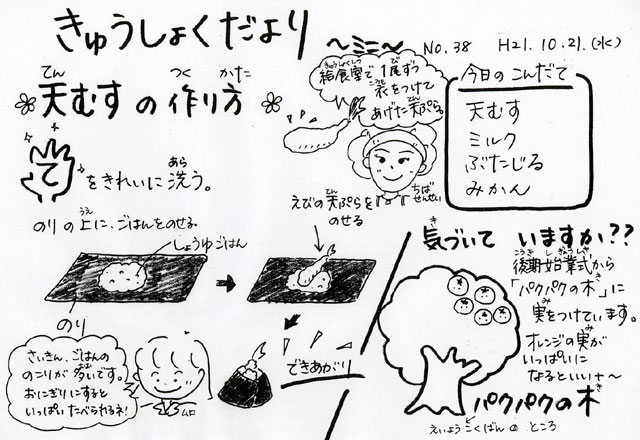 きゅうしょくだより ～ミニ～ No.38 H21.10.21.(水)
てん つく かた
天むすの作り方
きゅうしょくしつ び
給食室で1尾ずつ
ころも
衣をつけて
てん
あげた天ぷら。
ちば
せんせい
今日のこんだて
天むす
ミルク
ぶたじる
みかん
て
あら
をきれいに洗う。
うえ
のりの上に、ごはんをのせる。
しょうゆごはん
のり
てん
えびの天ぷらを
のせる
できあがり
さいきん、ごはんの
のこりが多いです。
おにぎりにすると
いっぱいたべられるネ!
ムロ
き
気づいて いますか??
こうき しぎょうしき
後期始業式から
き
「パクパクの木」に
み
実をつけています。
み
オレンジの実が
いっぱいに
なるといいナ～
き
パクパクの木
えいようこくばんのところ